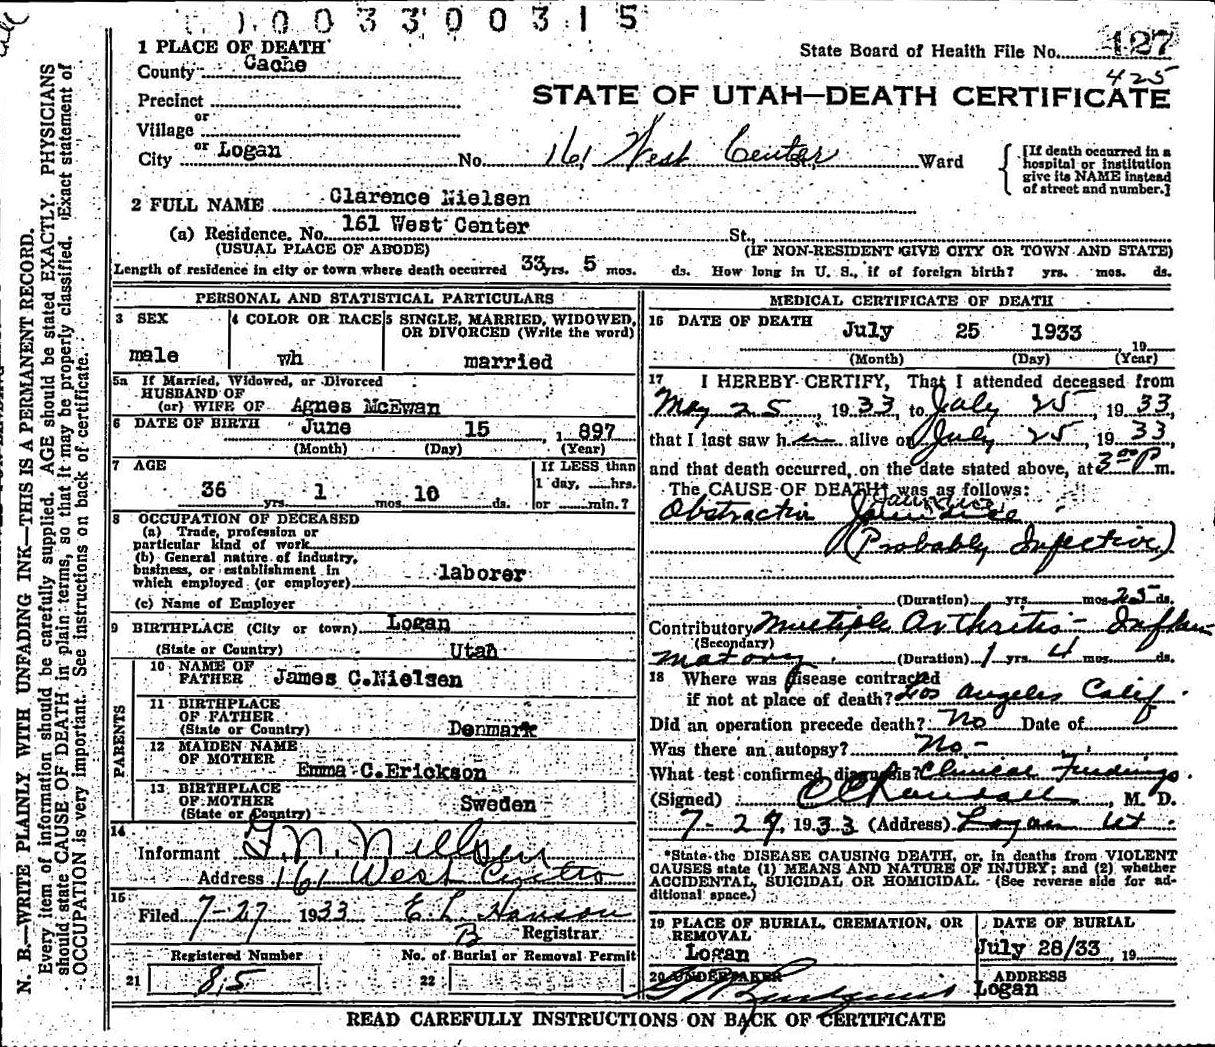 0 0 3 3 0 0 3 1 5
1 PLACE OF DEATH
State Board of Health File No. 127
County Cache
425
STATE OF UTAH—DEATH CERTIFICATE
Precinct
or
Village
or
City Logan No. 161 West Center Ward
[If death occurred in a
hospital or institution
give its NAME instead
of street and number.]
2 FULL NAME Clarence Nielsen
(a) Residence. No. 161 West Center St.,
(USUAL PLACE OF ABODE) (IF NON-RESIDENT GIVE CITY OR TOWN AND STATE)
Length of residence in city or town where death occurred 33 yrs. 5 mos. ds. How long in U. S., if of foreign birth? yrs. mos. ds.
PERSONAL AND STATISTICAL PARTICULARS
3 SEX
male
4 COLOR OR RACE
wh
5 SINGLE, MARRIED, WIDOWED,
OR DIVORCED (Write the word)
married
5a If Married, Widowed, or Divorced
HUSBAND OF
(or) WIFE OF Agnes McEwan
6 DATE OF BIRTH June 15, 1897
(Month) (Day) (Year)
7 AGE
36 yrs. 1 mos. 10 ds.
If LESS than
1 day, hrs.
or min.?
8 OCCUPATION OF DECEASED
(a) Trade, profession or
particular kind of work
(b) General nature of industry,
business, or establishment in
which employed (or employer) laborer
(c) Name of Employer
9 BIRTHPLACE (City or town) Logan
(State or Country) Utah
PARENTS
10 NAME OF
FATHER James C.Nielsen
11 BIRTHPLACE
OF FATHER
(State or Country) Denmark
12 MAIDEN NAME
OF MOTHER
Emma C.Erickson
13 BIRTHPLACE
OF MOTHER Sweden
(State or Country)
14
Informant G. N. Nielsen
Address 161 West Centre
15
Filed 7-27 1933 E. L. Hanson
B Registrar
Registered Number
21 85
No. of Burial or Removal Permit
22
MEDICAL CERTIFICATE OF DEATH
16 DATE OF DEATH
July 25 1933 19
(Month) (Day) (Year)
17 I HEREBY CERTIFY, That I attended deceased from
May 25, 1933, to July 25, 1933,
that I last saw him alive on July 25, 1933,
and that death occurred, on the date stated above, at 3 00 P m.
The CAUSE OF DEATH* was as follows:
Jaundice
Obstructiv Jaundice
(Probably Infective)
(Duration) yrs. mos. 25 ds.
Contributory Multiple Arthritis - Inflam
(Secondary)
matory. (Duration) 1 yrs. 4 mos. ds.
18 Where was disease contracted
if not at place of death? Los Angeles Calif.
Did an operation precede death? No Date of
Was there an autopsy? No -
What test confirmed diagnosis? Clinical Findings.
(Signed) O C Randall, M. D.
7-29, 1933 (Address) Logan Ut.
*State the DISEASE CAUSING DEATH, or, in deaths from VIOLENT
CAUSES state (1) MEANS AND NATURE OF INJURY; and (2) whether
ACCIDENTAL, SUICIDAL OR HOMICIDAL. (See reverse side for ad-
ditional space.)
19 PLACE OF BURIAL, CREMATION, OR
REMOVAL
Logan
DATE OF BURIAL
July 28/33, 19
20 UNDERTAKER
ADDRESS
Logan
READ CAREFULLY INSTRUCTIONS ON BACK OF CERTIFICATE
N. B.—WRITE PLAINLY WITH UNFADING INK—THIS IS A PERMANENT RECORD.
Every item of information should be carefully supplied. AGE should be stated EXACTLY. PHYSICIANS
should state CAUSE OF DEATH in plain terms, so that it may be properly classified. Exact statement of
OCCUPATION is very important. See instructions on back of certificate.